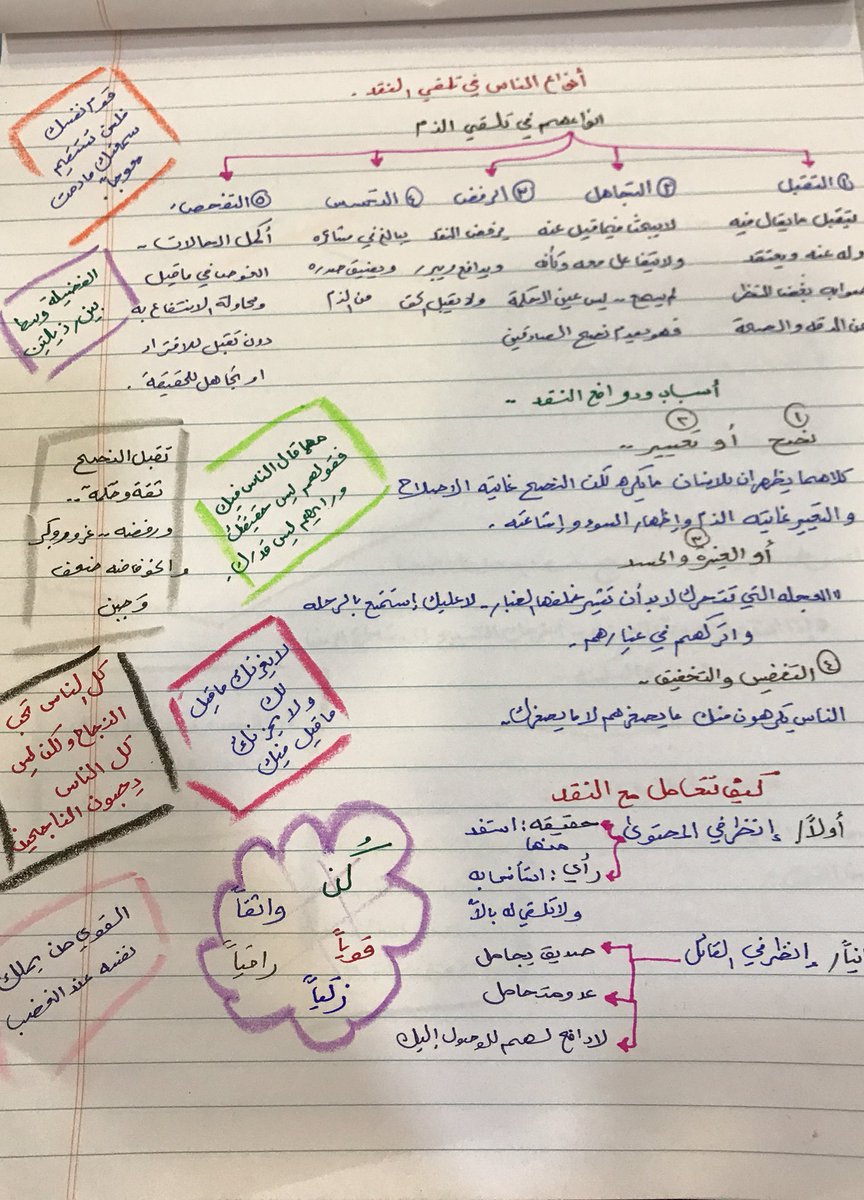 أنواع الناس في تلقي النقد.
انواعهم في تلقي الذم
① التقبل
يتقبل ما يقال فيه
وله عنه ويعتقد
صوابه بغض النظر
عن الدقه والصحة
② التجاهل
لا يبحث فيما قيل عنه
ولا يتفاعل معه وكأنه
لم يسمع .. ليس عين الحكمة
فهو يعدم نصح الصادقين
③ الرفض
يرفض النقد
ويدافع ويبرر
ولا يقبل الحق
④ التحسس
يبالغ في مشاعره
ويضيق صدره
من الذم
⑤ التفحص:
أكمل الحالات ..
الغوص في ما قيل
ومحاولة الانتفاع به
دون تقبل للافتراء
او تجاهل للحقيقة.
قوم نفسك
فلن تستقيم
سمعتك مادمت
معوجاً
الفضيلة وسط
بين رذيلتين
أسباب ودوافع النقد ..
① نصح أو ② تعيير ..
كلاهما يظهران للانسان ما يكره لكن النصح غايته الاصلاح
و التعيير غايته الذم وإظهار السوء وإشاعته.
③ أو الغيرة والحسد
"العجله التي تتحرك لابد أن تثير خلفها الغبار .. لا عليك إستمتع بالرحله
واتركهم في غبارهم.
④ التنفيس والتخفيف ..
الناس يكرهون منك ما يصغرهم لا ما يصغرك ..
تقبل النصح
ثقة وحكمة ..
ورفضه .. غرور وكبر
والخوف منه ضعف
وجبن
مهما قال الناس فيك
فقولهم ليس حقيقتك
ورايهم ليس قدرك.
لا يغرنك ما قيل
لك
ولا يحزنك
ما قيل فيك
كل الناس تحب
النجاح ولكن ليس
كل الناس
يحبون الناجحين
كيف نتعامل مع النقد
أولاً/ إنظر في المحتوى
حقيقه: استفد
منها
رأي: استأنس به
ولا تلقي له بالاً
إنظر في القائل
صديق يجامل
عدو متحامل
لا دافع لهم للوصول إليك
كُن
واثقاً
قوياً
راقياً
زكياً
القوي من يملك
نفسه عند الغضب